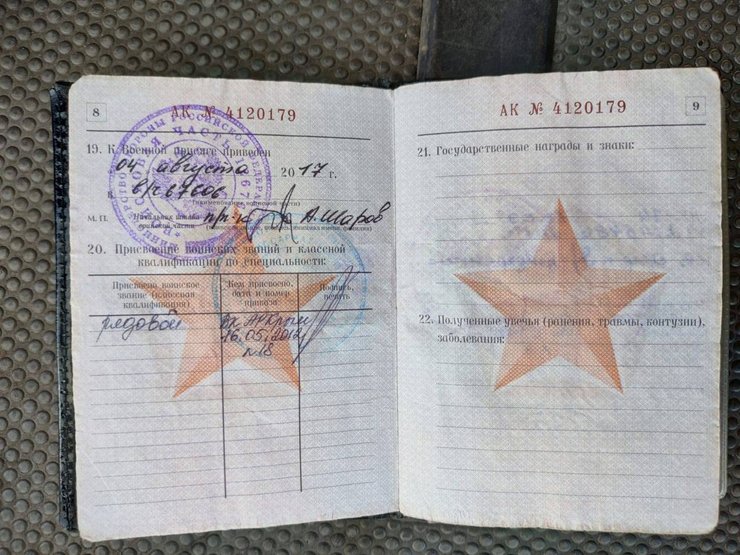 8
АК № 4120179
19. К Военной присяге приведен
04 августа 2017 г.
в в/ч 67606
(наименование воинской части)
М.П. Начальник штаба пр-к А. Шаров
воинской части
20. Присвоение воинских званий и классной
квалификации по специальности:
Присвоено воинское
звание (классная
квалификация)
Кем присвоено,
дата и номер
приказа
Подпись,
печать
рядовой
16.05.2012
№18
9
АК № 4120179
21. Государственные награды и знаки:
22. Полученные увечья (ранения, травмы, контузии),
заболевания: